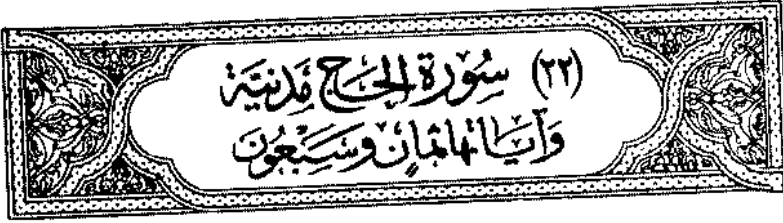 (٢٢) سُورَة الحَاجّ مَدَنيَّة
وَآيَاتهَا ثمَانٍ وَسَبْعُون